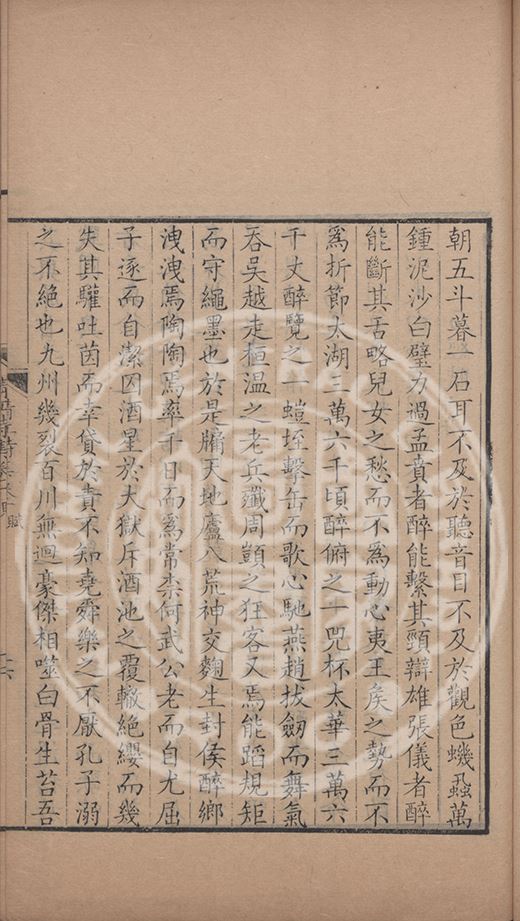 朝五斗暮一石耳不及於聽音目不及於觀色蟣蝨萬
鍾泥沙白璧力過孟賁者醉能繫其頸辯雄張儀者醉
能斷其舌略兒女之愁而不為動心夷王矦之勢而不
為折節太湖三萬六千頃醉俯之一兕杯太華三萬六
千丈醉覽之一螘垤擊缶而歌心馳燕趙拔劒而舞氣
吞吳越走桓溫之老兵殲周顗之狂客又焉能蹈規矩
而守繩墨也於是牖天地廬八荒神交麴生封侯醉鄉
洩洩焉陶陶焉率千日而為常柰何武公老而自尤屈
子逐而自潔囚酒星於大獄斥酒池之覆轍絕纓而幾
失其驩吐茵而幸貸於責不知堯舜樂之不厭孔子溺
之不絕也九州幾裂百川無迴豪傑相噬白骨生苔吾
賦